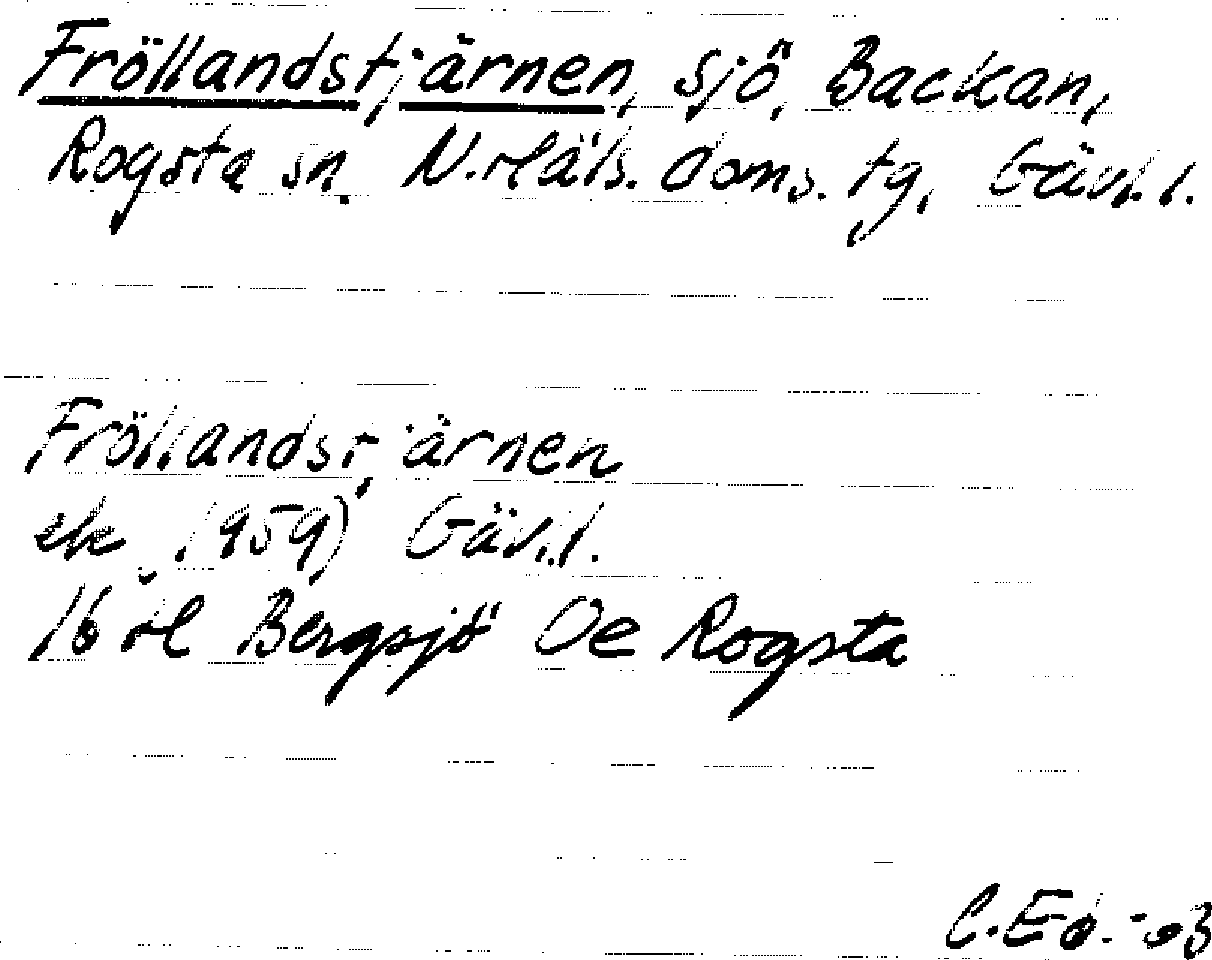 Fröllandstjärnen, sjö, Backan,
Rogsta sn. N. Häls. doms. tg, Gävl. l.
Fröllandstjärnen
ek (1959) Gävl. l.
16 H Bergsjö Oe Rogsta
C. Ed. -03